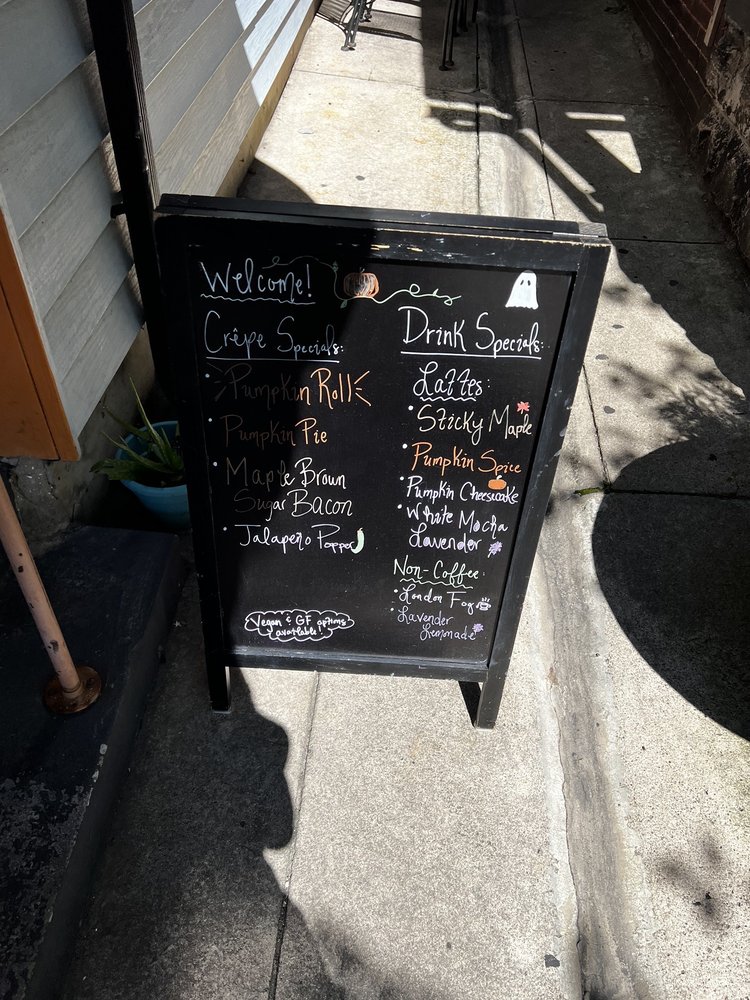 Welcome!
Crêpe Specials:
Pumpkin Roll
Pumpkin Pie
Maple Brown
Sugar Bacon
Jalapeño Popper
Vegan & GF options
available!
Drink Specials:
Lattes:
Sticky Maple
Pumpkin Spice
Pumpkin Cheesecake
White Mocha
Lavender
Non-Coffee:
London Fog
Lavender
Lemonade